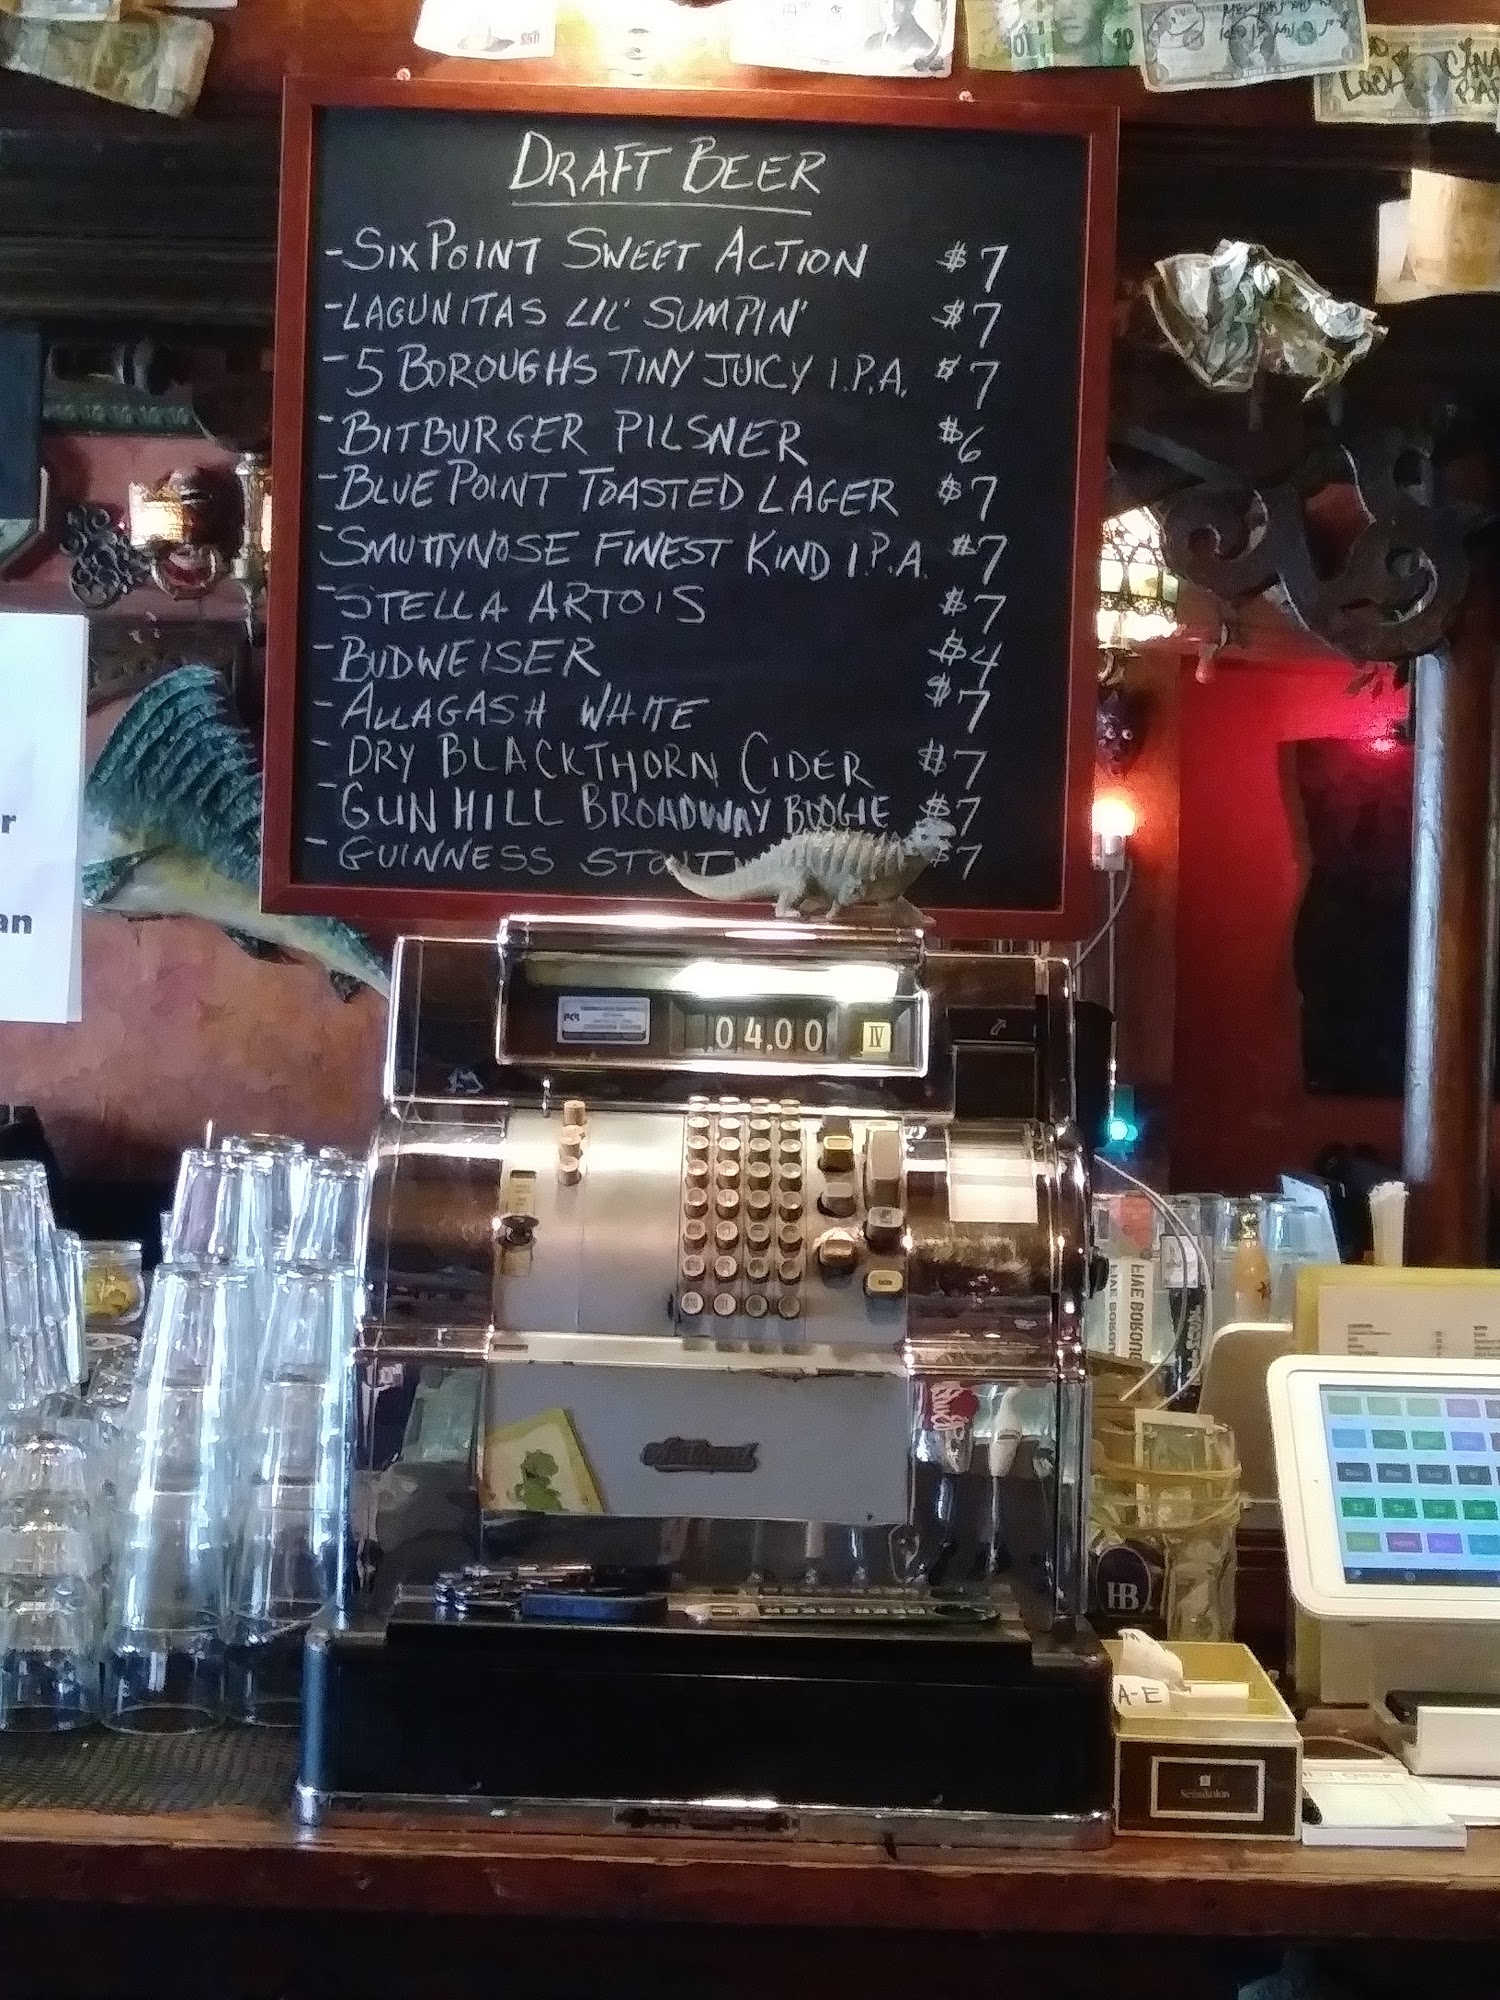 10 10
LOOK CANA
BAR
DRAFT BEER
- SIXPOINT SWEET ACTION $7
- LAGUNITAS LIL' SUMPIN' $7
- 5 BOROUGHS TINY JUICY I.P.A. $7
- BITBURGER PILSNER $6
- BLUE POINT TOASTED LAGER $7
- SMUTTYNOSE FINEST KIND I.P.A. $7
- STELLA ARTOIS $7
- BUDWEISER $4
- ALLAGASH WHITE $7
- DRY BLACKTHORN CIDER $7
- GUN HILL BROADWAY BOOGIE $7
- GUINNESS STOUT $7
r
an
04.00 IV
FIVE BOROU
HB
A-E